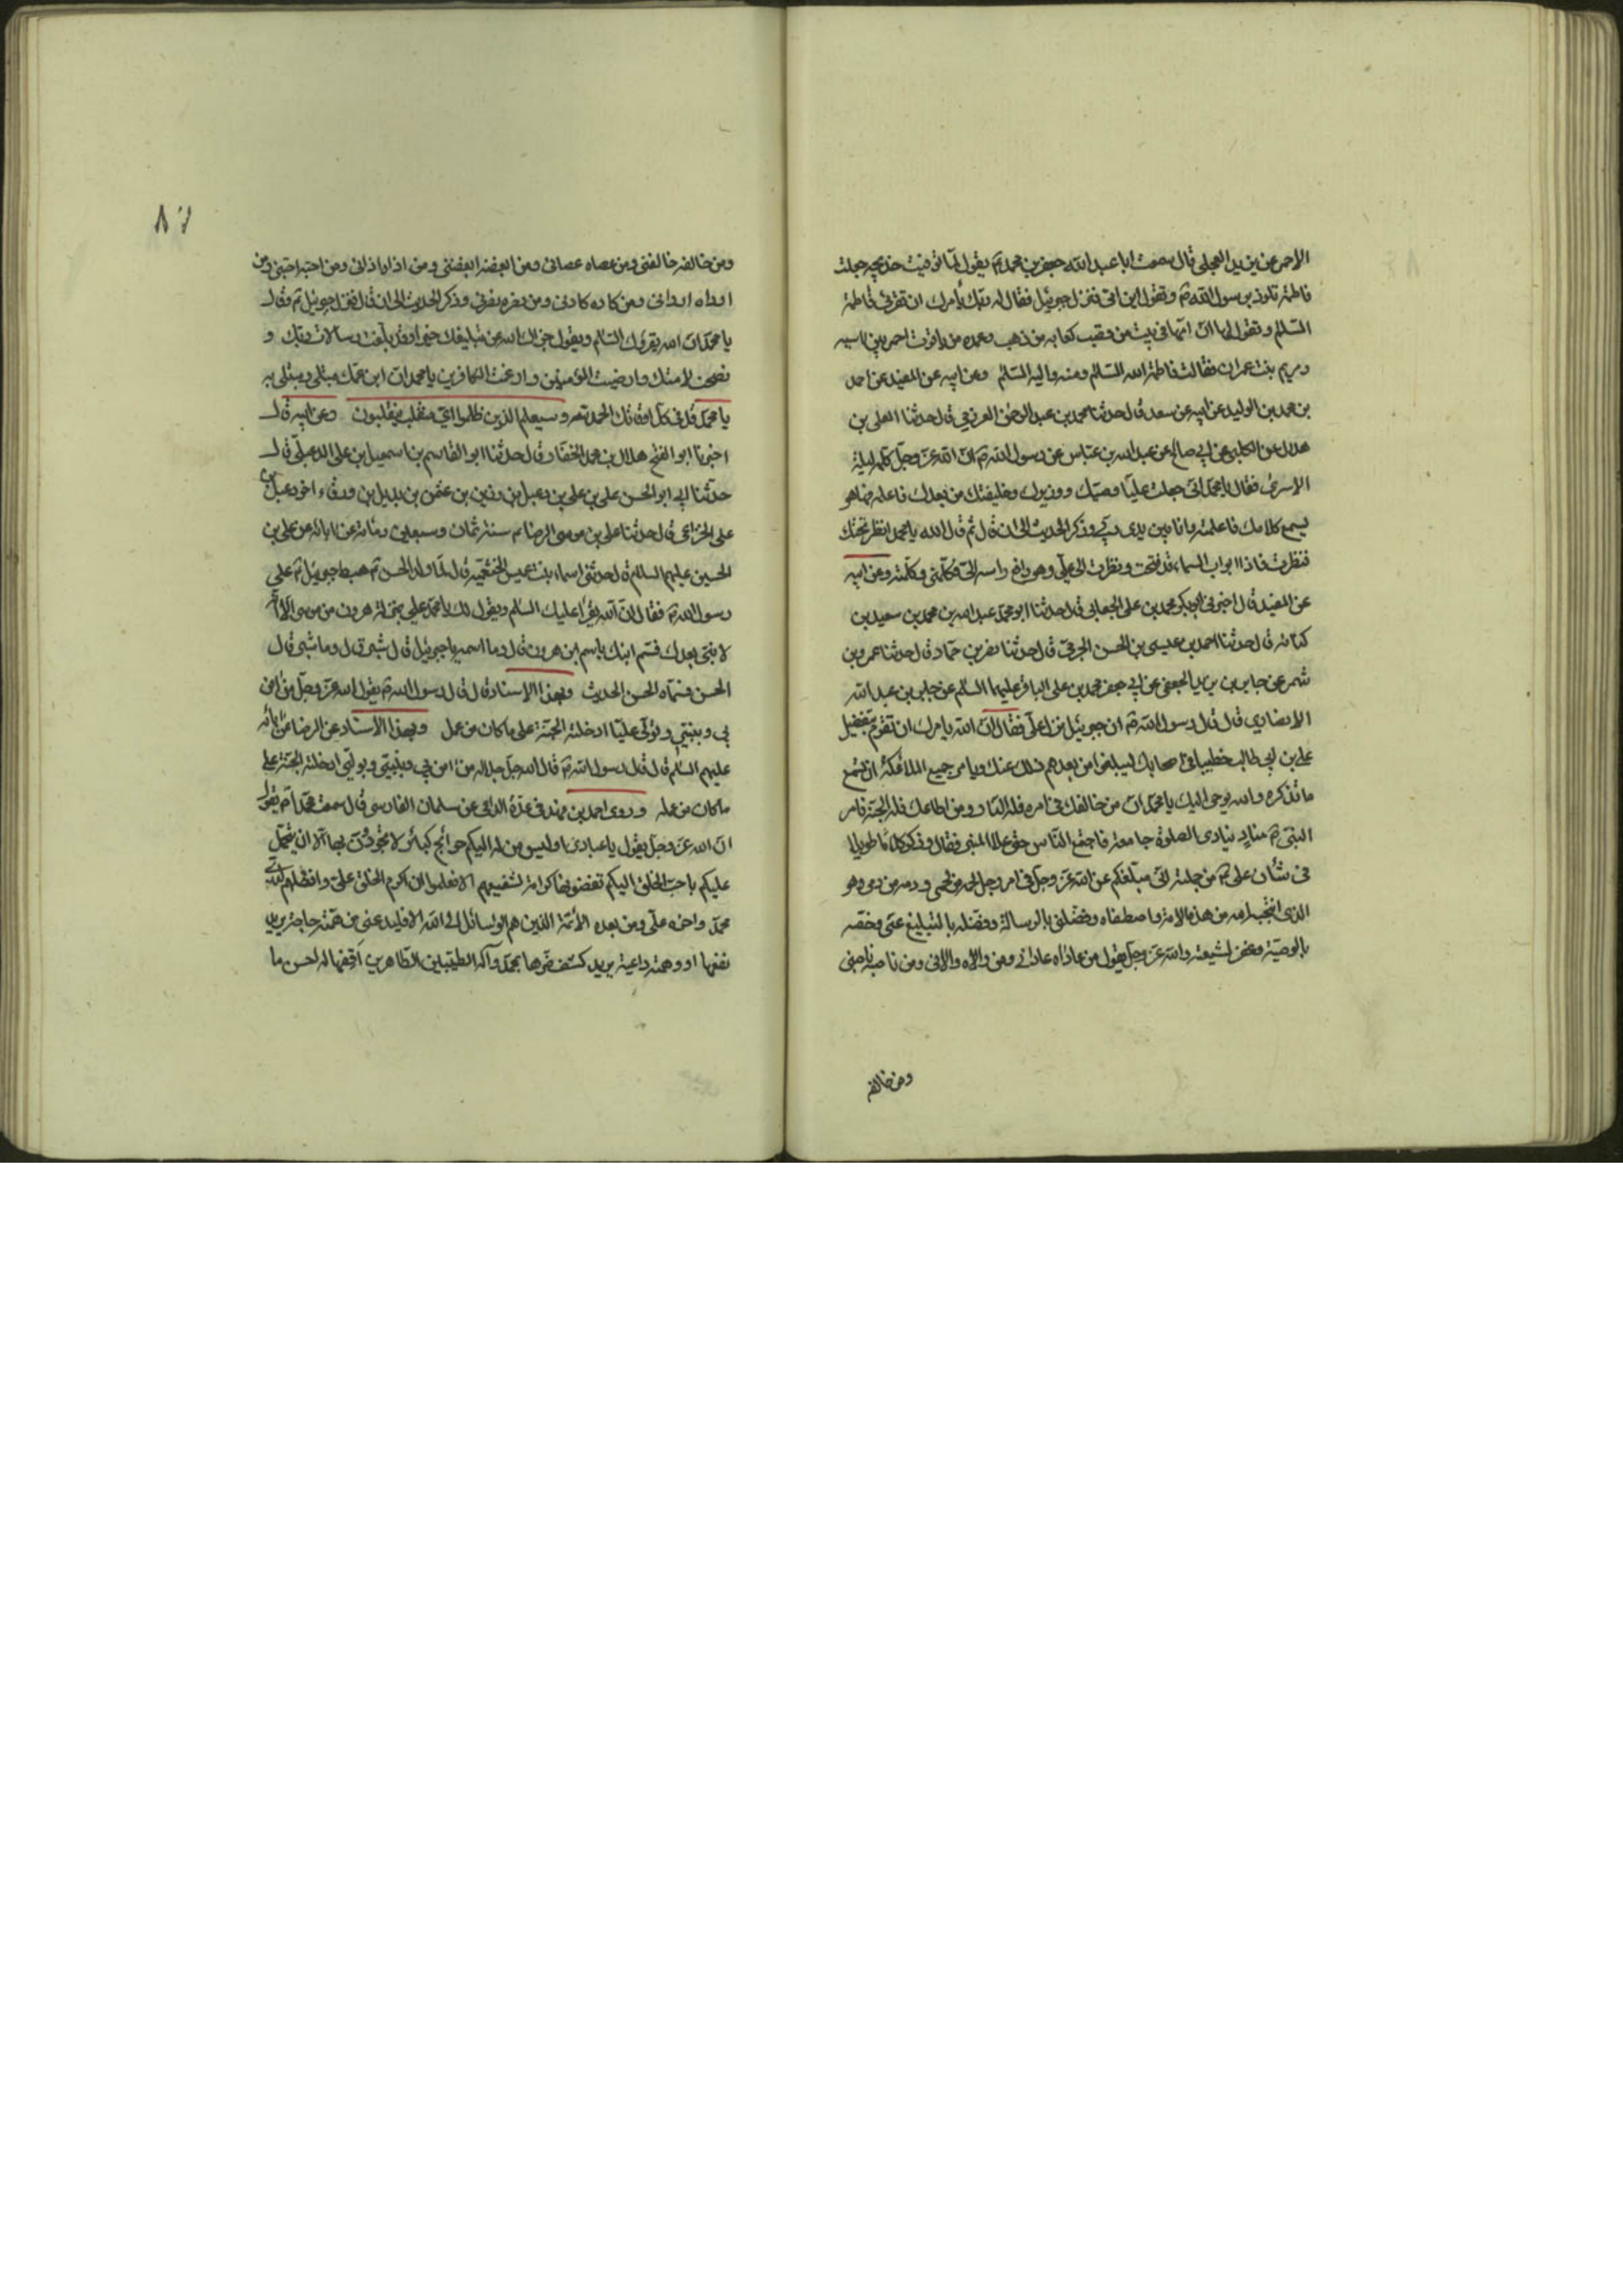 الاحمر عن يزيد العجلي قال سمعت ابا عبد الله جعفر بن محمد ع يقول لما توفيت خديجه جعلت
فاطمة تلوذ برسول الله ص وتقول اين امي فنزل جبرئيل فقال له ربك يأمرك ان تقرئ فاطمة
السلام وتقول لها ان امها في بيت من قصب كعابه من ذهب وعمده من ياقوت احمر بين اسيه
ومريم بنت عمران فقالت فاطمة الله السلام ومنه واليه السلام وعن ابيه عن المفيد عن احمد
بن محمد بن الوليد عن ابيه عن سعد قال حدثنا محمد بن عبد الرحمن العرزمي قال حدثنا المعلى بن
هلال عن الكلبي عن ابي صالح عن عبد الله بن عباس عن رسول الله ص ان الله عز وجل كلمه ليلة
الاسرى فقال يا محمد اني جعلت عليا وصيك ووزيرك وخليفتك من بعدك فاعلمه فها هو
يسمع كلامك فاعلمته وانا بين يدي ربي وذكر الحديث الى ان قال ثم قال الله يا محمد انظر تحتك
فنظرت فاذا ابواب السماء قد فتحت ونظرت الى علي وهو رافع راسه الي فكلمني وكلمته وعن ابيه
عن المفيد قال اخبرني ابو بكر محمد بن علي الجعابي قال حدثنا ابو محمد عبد الله بن محمد بن سعيد بن
قال حدثنا احمد بن عيسى بن الحسن الجرمي قال حدثنا نصر بن حماد قال حدثنا عمرو بن
شمر عن جابر بن يزيد الجعفي عن ابي جعفر محمد بن علي الباقر عليهما السلام عن جابر بن عبد الله
الانصاري قال قال رسول الله ص ان جبرئيل نزل علي فقال ان الله يامرك ان تقوم بتفضيل
علي بن ابي طالب خطيبا في اصحابك ليبلغوا من بعدهم ذلك عنك ويامر جميع الملائكة ان تسمع
ما تذكره والله يوحي اليك يا محمد ان من خالفك في امره فله النار ومن اطاعك فله الجنة فامر
النبي ص مناديا ينادي الصلوة جامعة فاجتمع الناس حتى علا المنبر فقال وذكر كلاما طويلا
في شأن علي ع من جملته اني مبلغكم عن الله عز وجل في امر رجل لحمه من لحمي ودمه من دمي وهو
الذي انتجبه الله من هذه الامة واصطفاه وفضلني بالرسالة وفضله بالتبليغ عني وخصه
بالوصية وغفر لشيعته والله عز وجل يقول من عاداه عاداني ومن والاه والاني ومن ناصبه ناصبني
ومن خالفه
ومن خالفه خالفني ومن عصاه عصاني ومن ابغضه ابغضني ومن اذاه اذاني ومن احبه احبني ومن
اراده ارادني ومن كاده كادني ومن نصره نصرني وذكر الحديث الى ان قال فنزل جبرئيل ع وقال
يا محمد ان الله يقرئك السلام ويقول جزاك الله عن تبليغك خيرا وقد بلغت رسالات ربك و
نصحت لامتك وارضيت المؤمنين وارغمت الكافرين يا محمد ان ابن عمك مبتلى ومبتلى به
يا محمد قل في كل اوقاتك الحمد لله وسيعلم الذين ظلموا اي منقلب ينقلبون وعن ابيه قال
اخبرنا ابو الفتح هلال بن محمد الحفار قال حدثنا ابو القاسم بن اسمعيل بن علي الدعبلي قال
حدثنا ابي ابو الحسن علي بن علي بن دعبل بن رزين بن عثمن بن بديل بن ورقاء اخو دعبل بن
علي الخزاعي قال حدثنا علي بن موسى الرضا ع سنة ثمان وسبعين ومائة عن ابائه عن علي بن
الحسين عليهم السلام قال حدثتني اسماء بنت عميس الخثعميه قال لما ولد الحسن ع هبط جبرئيل ع على
رسول الله ص فقال ان الله يقرأ عليك السلام ويقول لك يا محمد علي بمنزلة هرون من موسى الا انه
لا نبي بعدك فسم ابنك باسم ابن هرون قال وما اسمه يا جبرئيل قال شبر قال وما شبر قال
الحسن فسماه الحسن الحديث وبهذا الاسناد قال قال رسول الله ص يقول الله عز وجل من امن
بي وبنبيي وتولى عليا ادخلته الجنة على ما كان من عمل وبهذا الاسناد عن الرضا عن ابائه
عليهم السلام قال قال رسول الله ص قال الله جل جلاله من امن بي وبنبيي وبوليي ادخلته الجنة على
ما كان من عمله وروى احمد بن فهد في عدة الداعي عن سلمان الفارسي قال سمعت محمدا ص يقول
ان الله عز وجل يقول يا عبادي اوليس من له اليكم حوائج كبائر لا تجودون بها الا ان يتحمل
عليكم باحب الخلق اليكم تقضونها كرامة لشفيعهم الا فاعلموا ان اكرم الخلق علي وافضلهم لدي
محمد واخوه علي ومن بعده الأئمة الذين هم الوسائل الى الله الا فليدعني من همته حاجة يريد
نفعها او دهمته داهية يريد كشف ضرها بمحمد وآله الطيبين الطاهرين اقضها له احسن ما